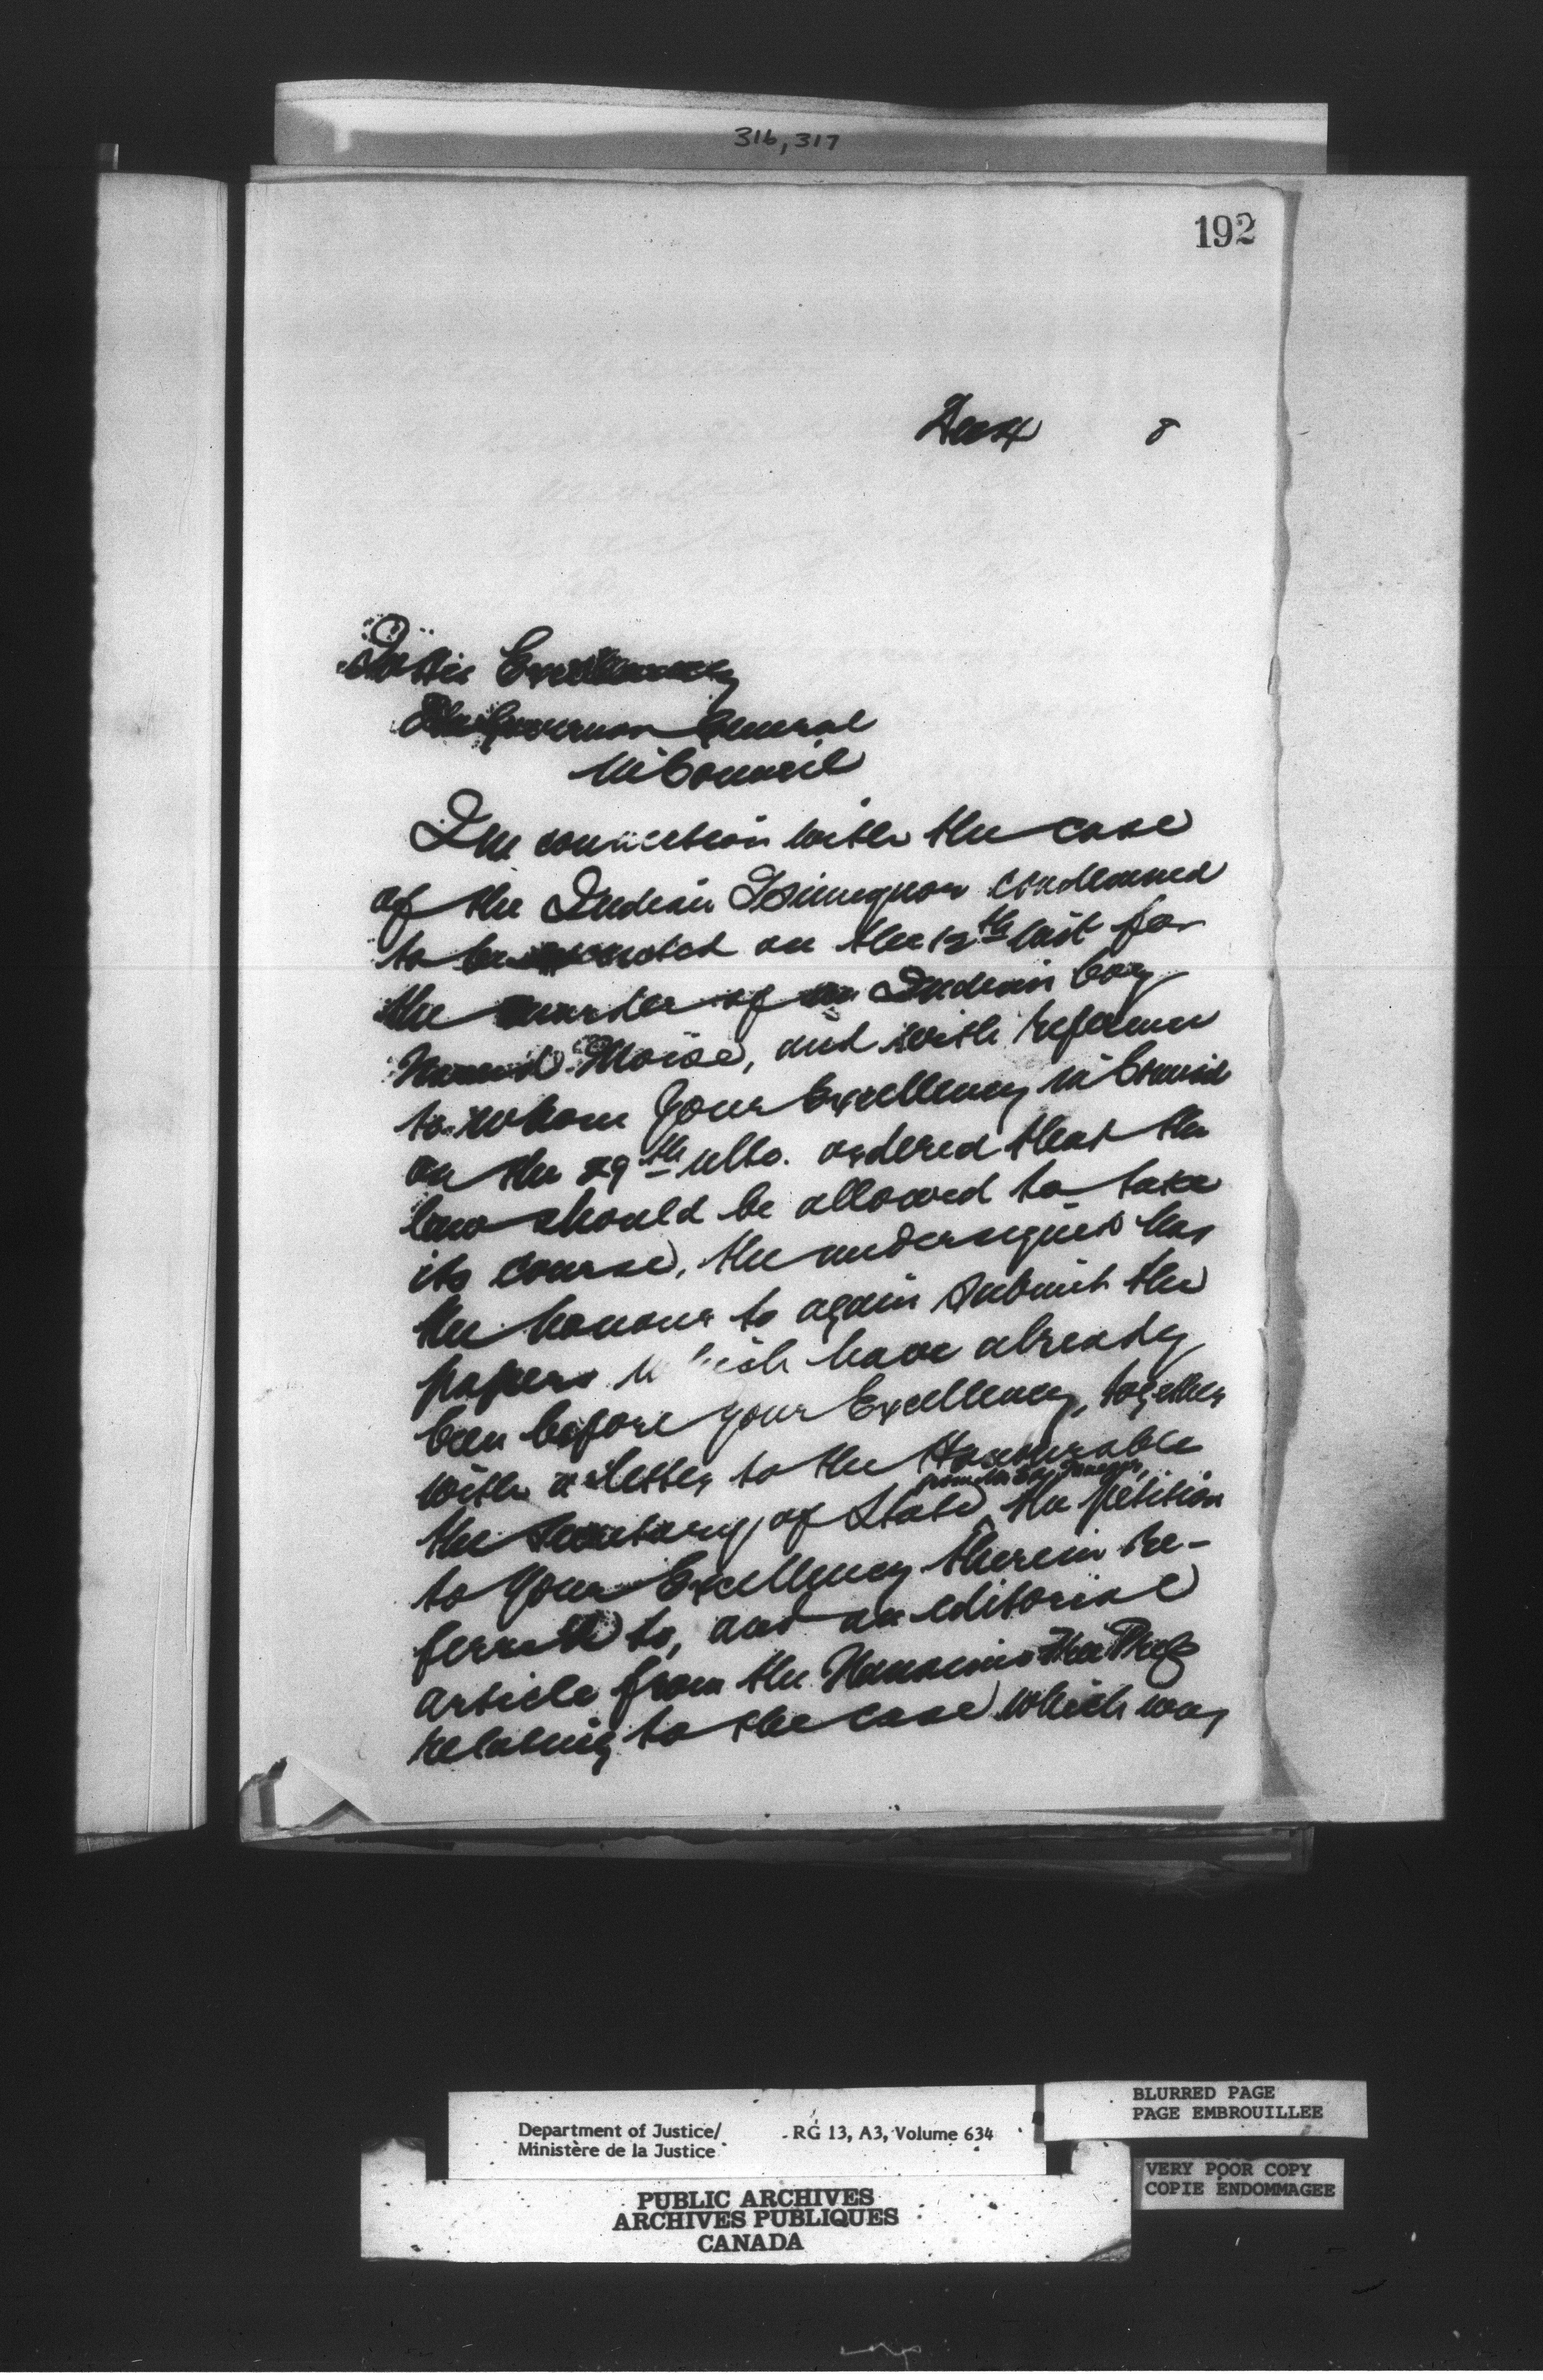 316, 317
192
Dec 4 8
To His Excellency
The Governor General
in Council
In connection with the case
of the Indian condemned
to be executed on the 12th inst for
the murder of an Indian boy
Named Moise, and with reference
to whom Your Excellency in Council
on the 29th ulto. ordered that the
law should be allowed to take
its course, the undersigned has
the honour to again submit the
papers which have already
been before your Excellency, together
with a letter to the Honourable
from
the Secretary of State, the petition
to Your Excellency therein re-
ferred to, and an editorial
article from the Nanaimo Free Press
relating to the case which was
Department of Justice/ RG 13, A3, Volume 634
Ministère de la Justice
BLURRED PAGE
PAGE EMBROUILLEE
VERY POOR COPY
COPIE ENDOMMAGEE
PUBLIC ARCHIVES
ARCHIVES PUBLIQUES
CANADA